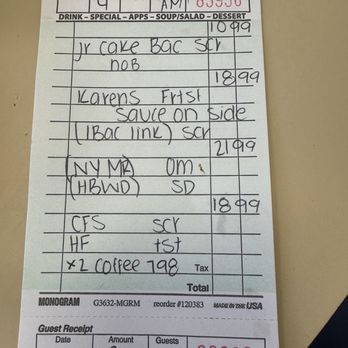 4 AM 83956
DRINK – SPECIAL – APPS – SOUP/SALAD – DESSERT
10 99
Jr cake Bac scr
noB
18 99
Karens Frtst
sauce on side
(1Bac link) scr
21 99
(NY MR) om
(HBWD) SD
18 99
CFS scr
HF tst
x2 coffee 798 Tax
Total
MONOGRAM G3632-MGRM reorder #120383 MADE IN THE USA
Guest Receipt
Date Amount Guests